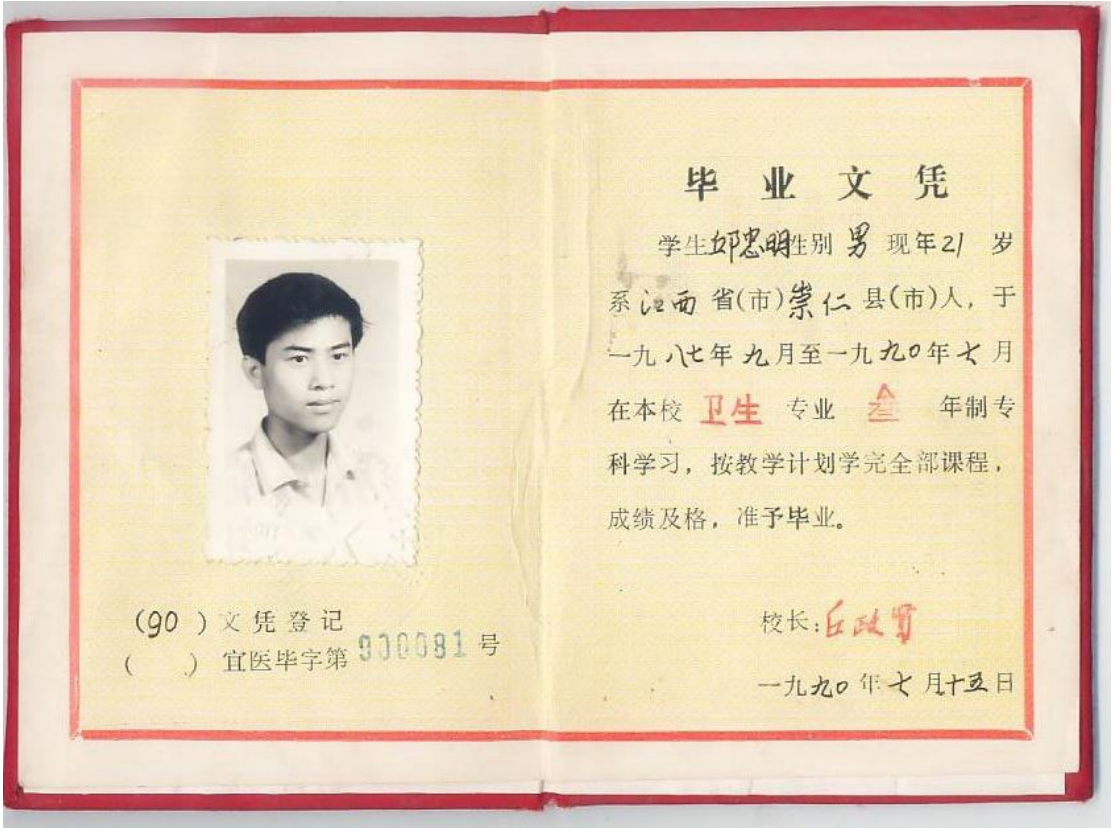 (90 )文凭登记
(    )宜医毕字第900081号
毕业文凭
学生邱忠明性别 男 现年21 岁
系江西省(市)崇仁县(市)人，于
一九八七年九月至一九九0年七月
在本校 卫生 专业 叁 年制专
科学习，按教学计划学完全部课程，
成绩及格，准予毕业。
校长:丘政贤
一九九0年七月十五日